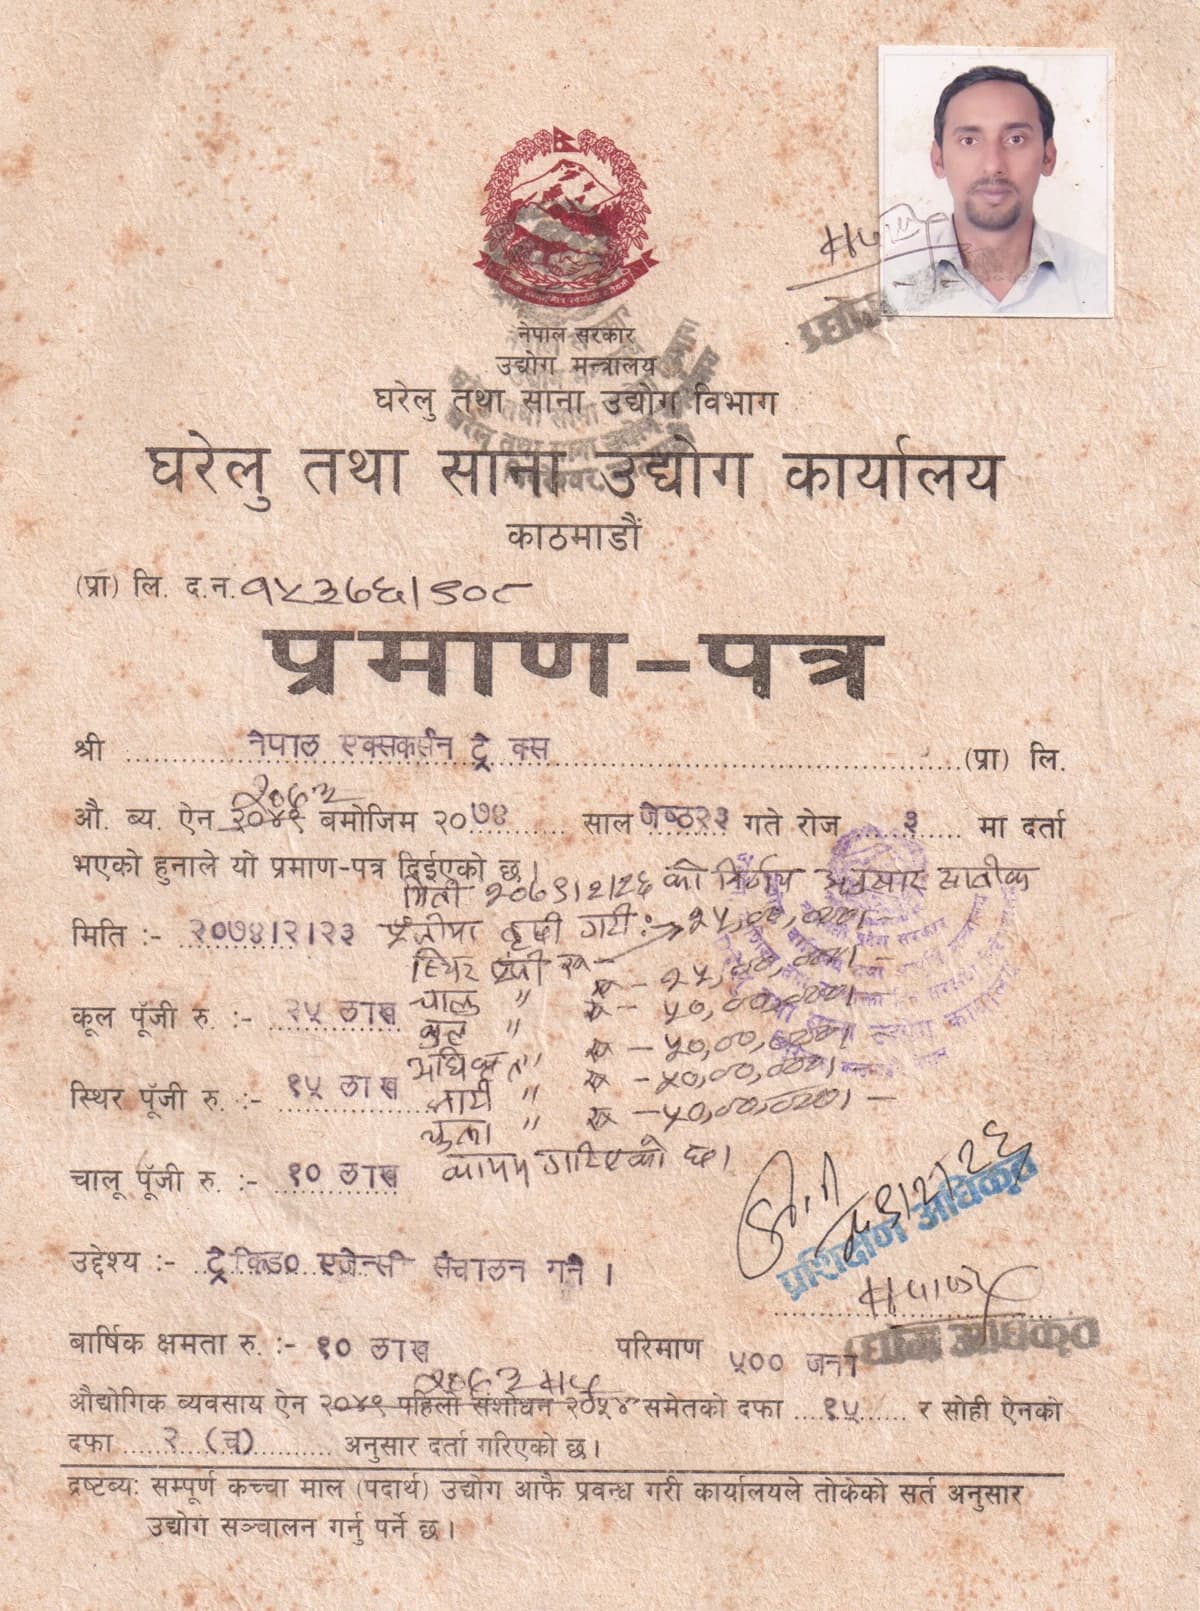 नेपाल सरकार
उद्योग मन्त्रालय
घरेलु तथा साना उद्योग विभाग
घरेलु तथा साना उद्योग कार्यालय
काठमाडौं
(प्रा) लि. द.न. १५३७६/९०८
प्रमाण-पत्र
श्री नेपाल एक्सकर्सन ट्रेक्स (प्रा) लि.
२०७३
औ. ब्य. ऐन २०४९ बमोजिम २०७४ साल जेष्ठ २३ गते रोज ३ मा दर्ता
भएको हुनाले यो प्रमाण-पत्र दिईएको छ।
मिती २०७९/२/२६ को निर्णय अनुसार साबीक
मिति :- २०७४/२/२३ पूँजीमा वृद्धी गरी :- २५,००,०००/-
स्थिर पूंजी रु
कूल पूँजी रु. :- २५ लाख चालु " रु - २५,००,०००/-
कुल " रु - ५०,००,०००/-
अधिकृत " रु - ५०,००,०००/-
स्थिर पूँजी रु. :- १५ लाख जारी " रु - ५०,००,०००/-
चुक्ता " रु - ५०,००,०००/-
चालू पूँजी रु. :- १० लाख कायम गरिएको छ।
७९/२/२६
प्रशिक्षण अधिकृत
उद्देश्य :- ट्रेकिङ एजेन्सी संचालन गर्ने ।
उद्योग अधिकृत
बार्षिक क्षमता रु. :- १० लाख परिमाण ५०० जना
२०७३
औद्योगिक व्यवसाय ऐन २०४९ पहिलो संशोधन २०५४ समेतको दफा १५ र सोही ऐनको
दफा २ (च) अनुसार दर्ता गरिएको छ।
द्रष्टब्य: सम्पूर्ण कच्चा माल (पदार्थ) उद्योग आफै प्रवन्ध गरी कार्यालयले तोकेको सर्त अनुसार
उद्योग सञ्चालन गर्नु पर्ने छ।